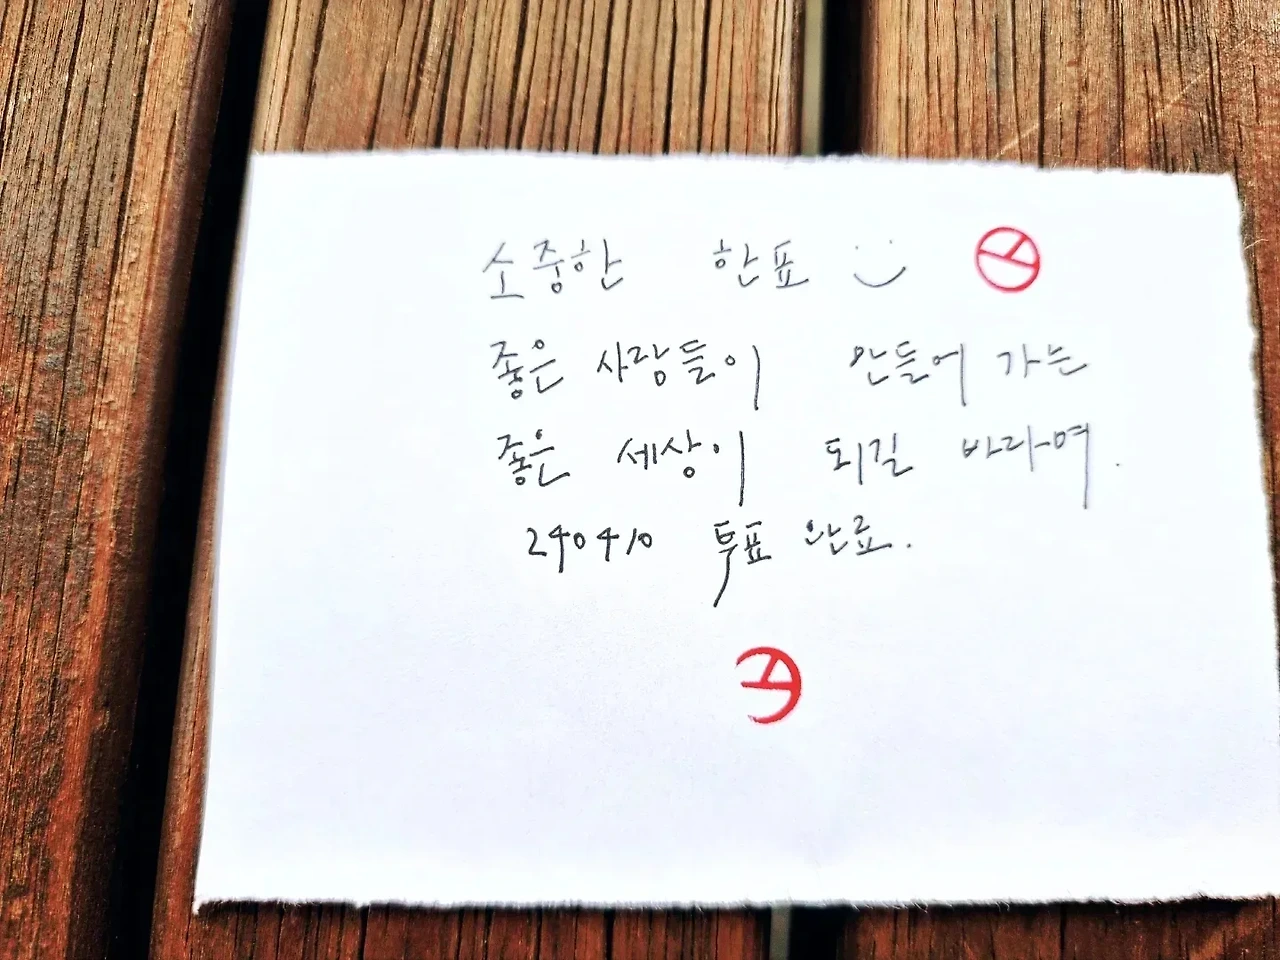 소중한 한표
좋은 사람들이 만들어 가는
좋은 세상이 되길 바라며.
240410 투표 완료.